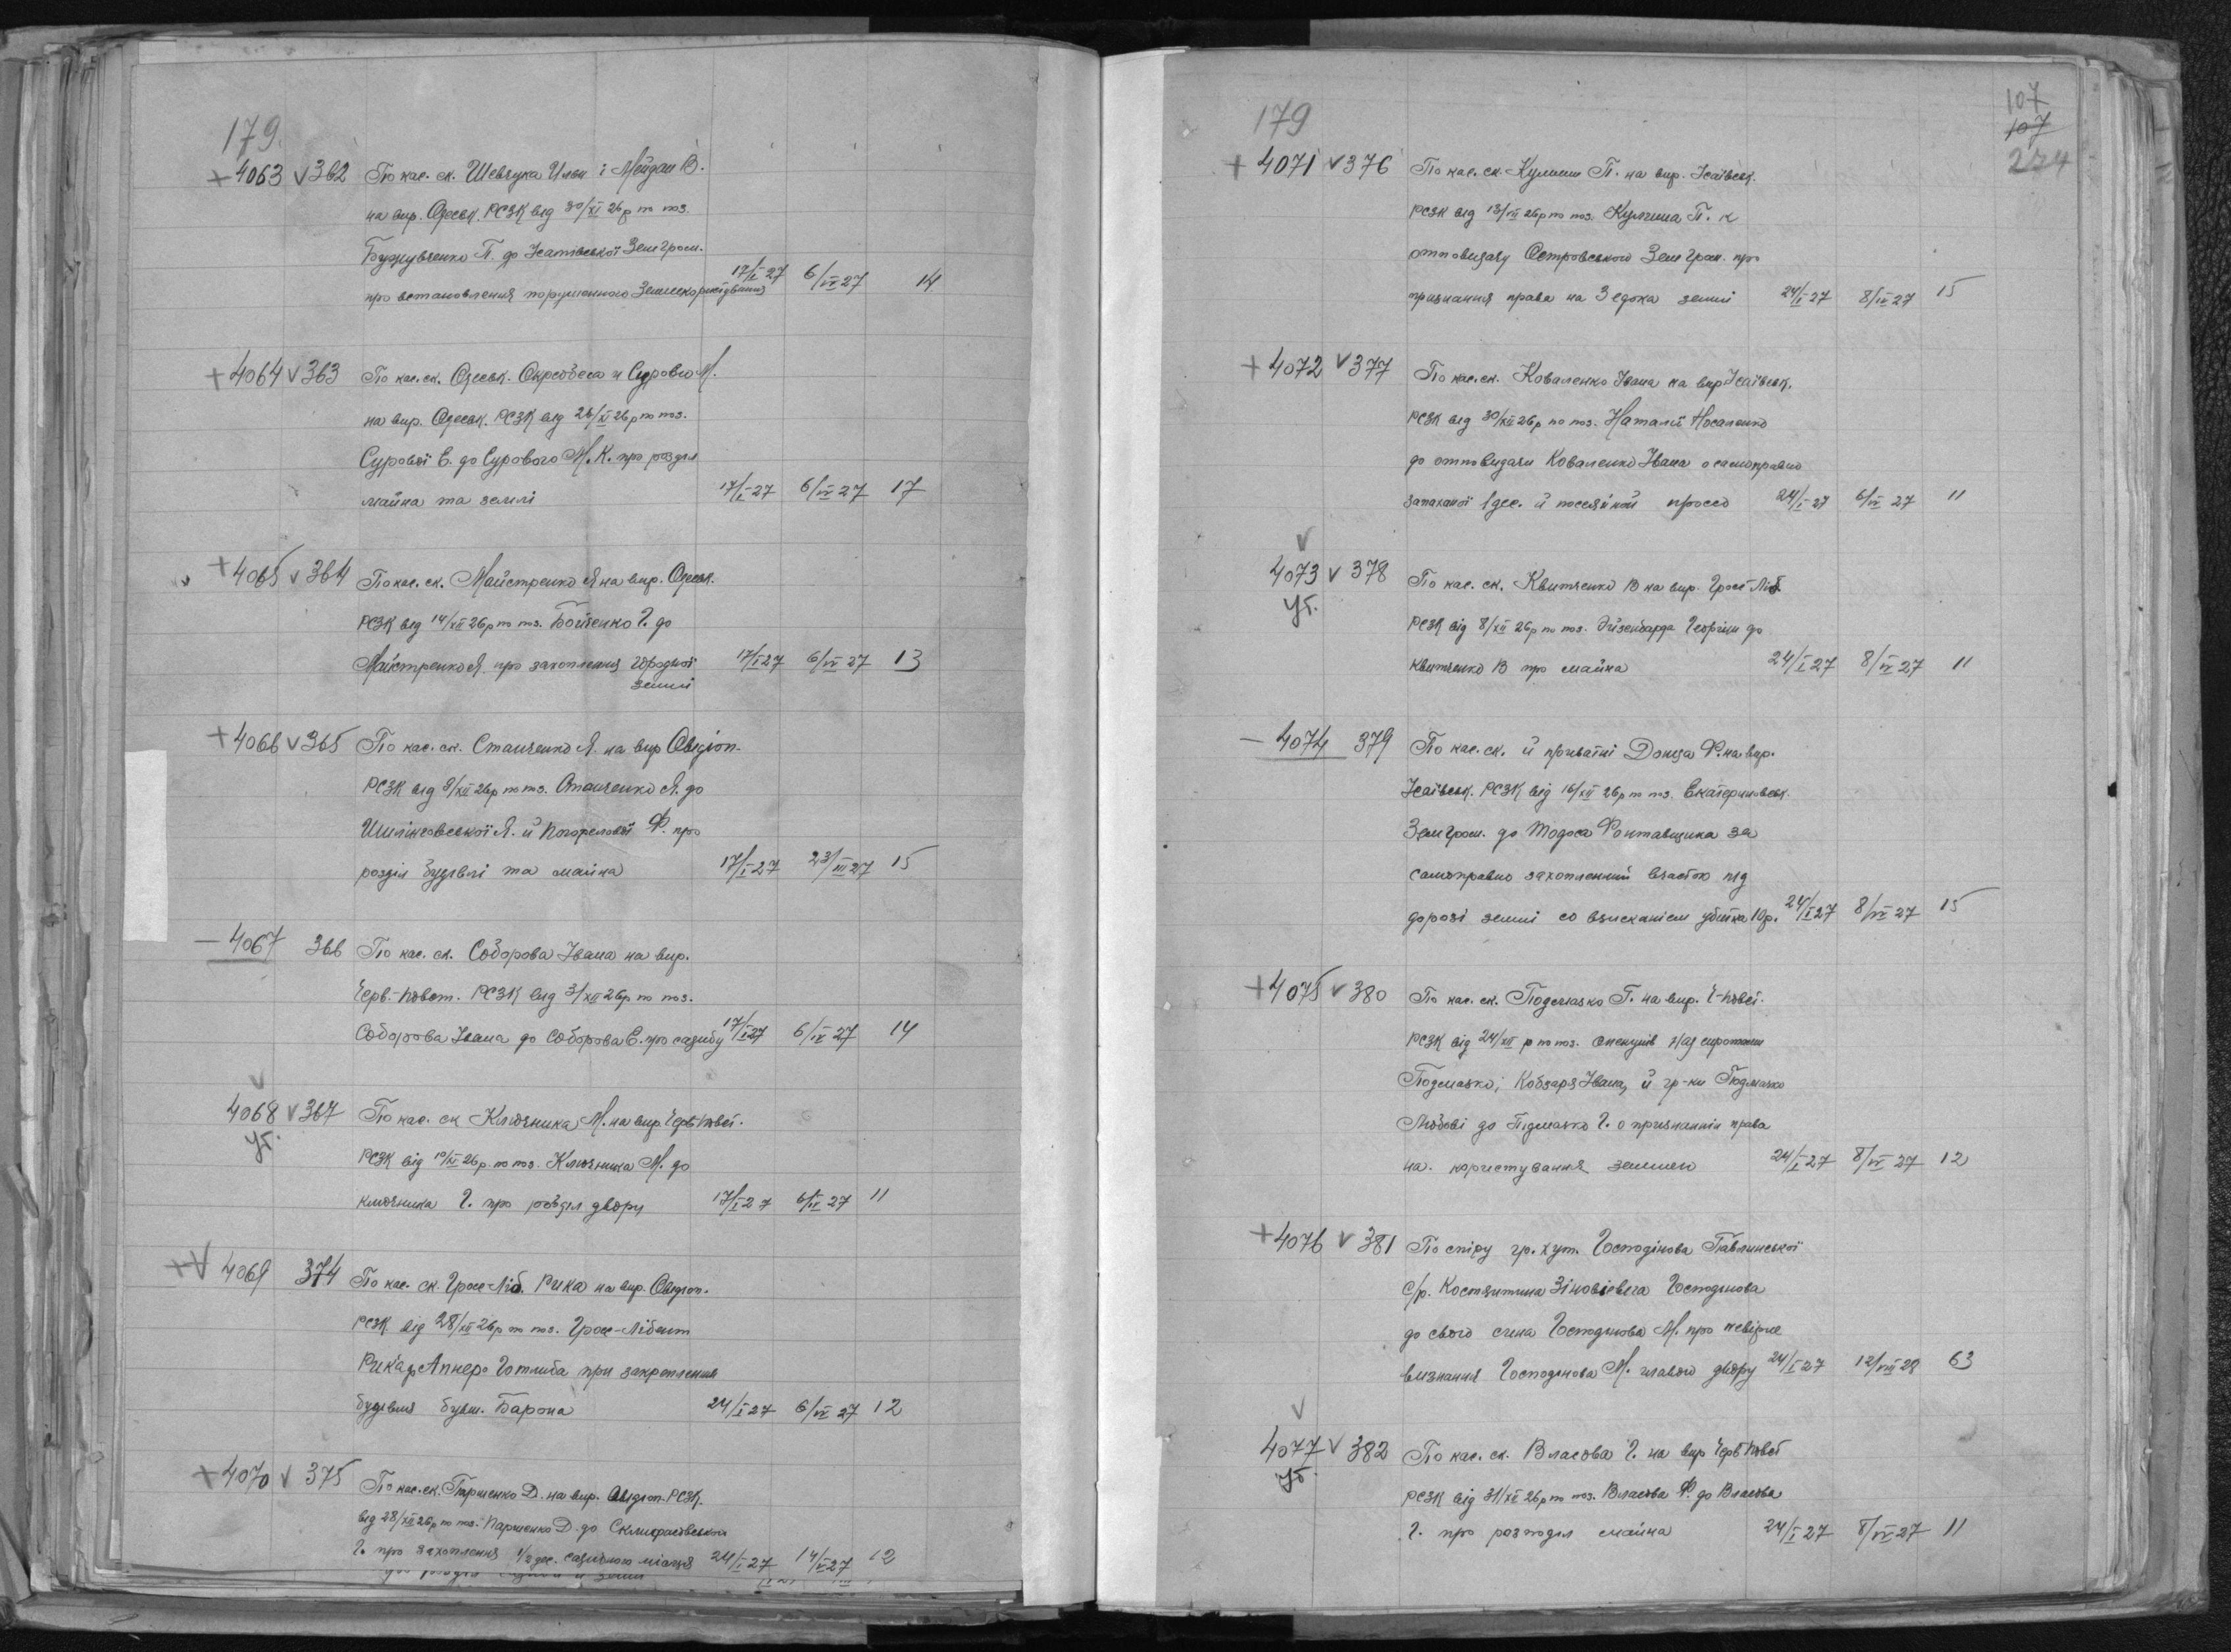 179
+4063 v 362 По кас. ск. Шевчука Ильи і Мейдан В.
на вир. Одеськ. РСЗК від 30/XI 26 р по поз.
П. до Усатівської Земгром.
про встановлення порушенного Землекористування 17/I 27 6/IV 27 14
+4064 v 363 По кас. ск. Одеськ. и Сурового М.
на вир. Одеськ. РСЗК від 26/XI 26 р по поз.
Сурової Е. до Сурового М. К. про розділ
майна та землі 17/I-27 6/IV 27 17
+4065 v 364 По кас. ск. Майстренко Я на вир. Одеськ.
РСЗК від 14/XII 26 р по поз. Бойченко Г. до
Майстренко Я. про захоплення городної 17/I 27 6/IV 27 13
землі
+4066 v 365 По кас. ск. Станченко Я. на вир Овідіоп.
РСЗК від 8/XII 26 р по поз. Станченко Я. до
Я. й Погорелової Ф. про
розділ будівлі та майна 17/I-27 23/III 27 15
— 4067 366 По кас. ск. Соборова Івана на вир.
Черв.-Повст. РСЗК від 3/XII 26 р по поз.
Соборова Івана до Соборова Е. про садибу 17/I 27 6/IV 27 14
v
4068 v 367 По кас. ск Ключника М. на вир. Черв Повст.
Ут.
РСЗК від 10/XII 26 р. по поз. Ключника М. до
Ключника Г. про розділ двору 17/I 27 6/IV 27 11
+v 4069 374 По кас. ск. Грос-Ліб. Рика на вир. Овідіоп.
РСЗК від 28/XII 26 р по поз. Грос-Лібент
Рика до Готлиба при закреплення
будівля бувш. Барона 24/I 27 6/IV 27 12
+4070 v 375 По кас. ск. Паршенко Д. на вир. Овідіоп. РСЗК
від 28/XII 26 р по поз. Паршенко Д. до
Г. про захоплення 1/2 дес. садибного місця 24/I 27 14/IV 27 12
179
107
107
224
+4071 v 376 По кас. ск. Кулиши П. на вир. Ісаївськ.
РСЗК від 13/XII 26 р по поз. П. к
отповидачу Островського Зем Гром. про
признання права на 3 едока землі 24/I 27 8/IV 27 15
+4072 v 377 По кас. ск. Коваленко Івана на вир Ісаївськ.
РСЗК від 30/XII 26 р по поз. Наталії Носаленко
до отповидачи Коваленко Івана о самоправно
запаханої 1 дес. й посеяної просо 24/I 27 6/IV 27 11
v
4073 v 378 По кас. ск. Квитченко В на вир. Грос Ліб.
Ут.
РСЗК від 8/XII 26 р по поз. Эйзенбарда Георгіи до
Квитченко В про майна 24/I 27 8/IV 27 11
— 4074 379 По кас. ск. й приватні Донца Ф. на вир.
Ісаївськ. РСЗК від 16/XII 26 р по поз. Екатериновськ.
Зем Гром. до Тодоса Фонтавщика за
самоправно захопленний участок під
дорозі землі со взысканіем убитка 10 р. 24/I 27 8/IV 27 15
+4075 v 380 По кас. ск. Подмазко Г. на вир. Ч-Повст.
РСЗК від 24/XII р по поз. опекунів над сиротами
Подмазко; Кобзаря Івана, й гр-ки Подмазко
Любові до Підмазко Г. о признаннін права
на. користування землею 24/I 27 8/IV 27 12
+4076 v 381 По спіру гр. хут. Господінова Павлинської
с/р. Костянтина Зіновієвича Господінова
до свого сина Господінова М. про невірне
визнання Господінова М. главою двору 24/I 27 12/VIII 28 63
v
4077 v 382 По кас. ск. Власова Г. на вир Черв Повст
Ут.
РСЗК від 31/XII 26 р по поз. Власова Ф. до Власова
Г. про розподіл майна 24/I 27 8/IV 27 11